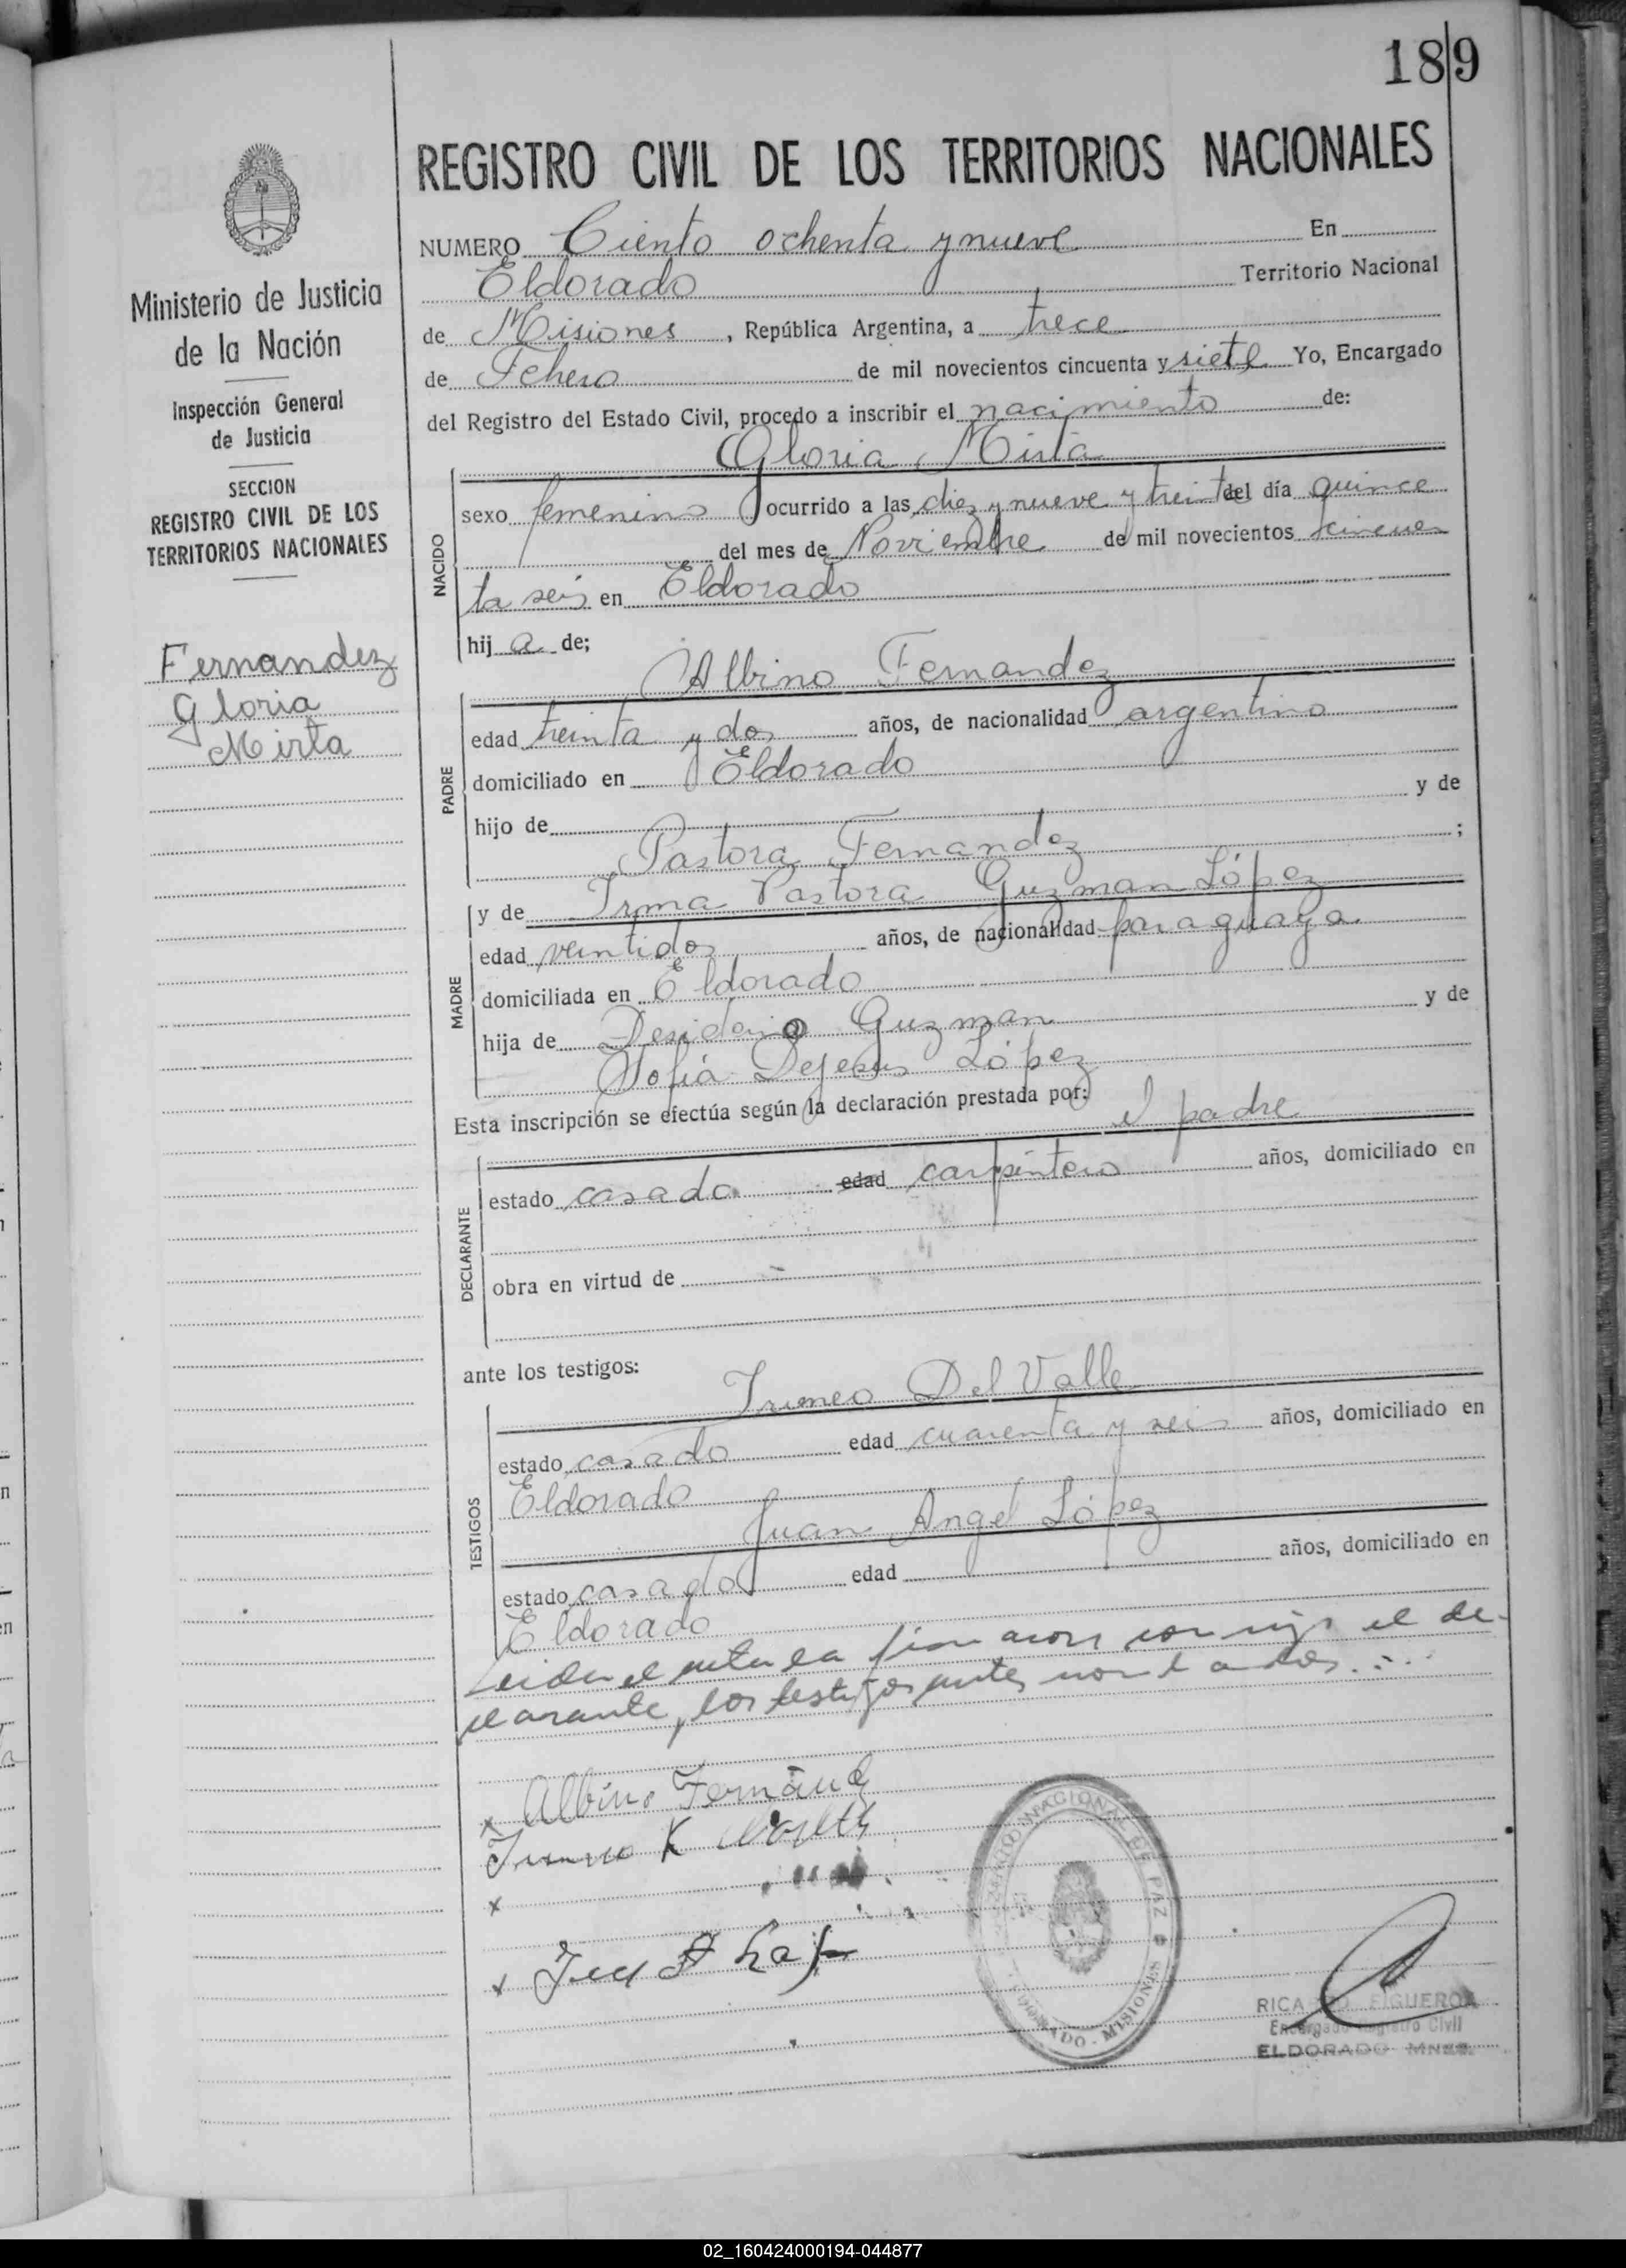 189
REGISTRO CIVIL DE LOS TERRITORIOS NACIONALES
Ministerio de Justicia
de la Nación
Inspección General
de Justicia
SECCION
REGISTRO CIVIL DE LOS
TERRITORIOS NACIONALES
Fernandez
Gloria
Mirta
NUMERO Ciento ochenta y nueve En
Eldorado Territorio Nacional
de Misiones, República Argentina, a trece
de Febrero de mil novecientos cincuenta y siete Yo, Encargado
del Registro del Estado Civil, procedo a inscribir el nacimiento de:
Gloria Mirta
NACIDO
sexo femenino ocurrido a las diez y nueve y treinta del día quince
del mes de Noviembre de mil novecientos cincuen
ta seis en Eldorado
hij a de;
Albino Fernandez
PADRE
edad treinta y dos años, de nacionalidad argentino
domiciliado en Eldorado
hijo de y de
Pastora Fernandez ;
y de Irma Pastora Guzman López
MADRE
edad veintidos años, de nacionalidad paraguaya
domiciliada en Eldorado
hija de Desiderio Guzman y de
Sofia Dejesus López
Esta inscripción se efectúa según la declaración prestada por:
el padre
DECLARANTE
estado casado edad carpintero años, domiciliado en
obra en virtud de
ante los testigos:
Irineo Del Valle
TESTIGOS
estado casado edad cuarenta y seis años, domiciliado en
Eldorado
Juan Angel López
estado casado edad años, domiciliado en
Eldorado
Leida el acta la firmaron conmigo el de-
clarante, los testigos antes nombrados
x Albino Fernand
x
x
NACIONAL DE PAZ
ELDORADO - MISIONES
RICARDO FIGUEROA
Encargado Registro Civil
ELDORADO MNES.
02_160424000194-044877